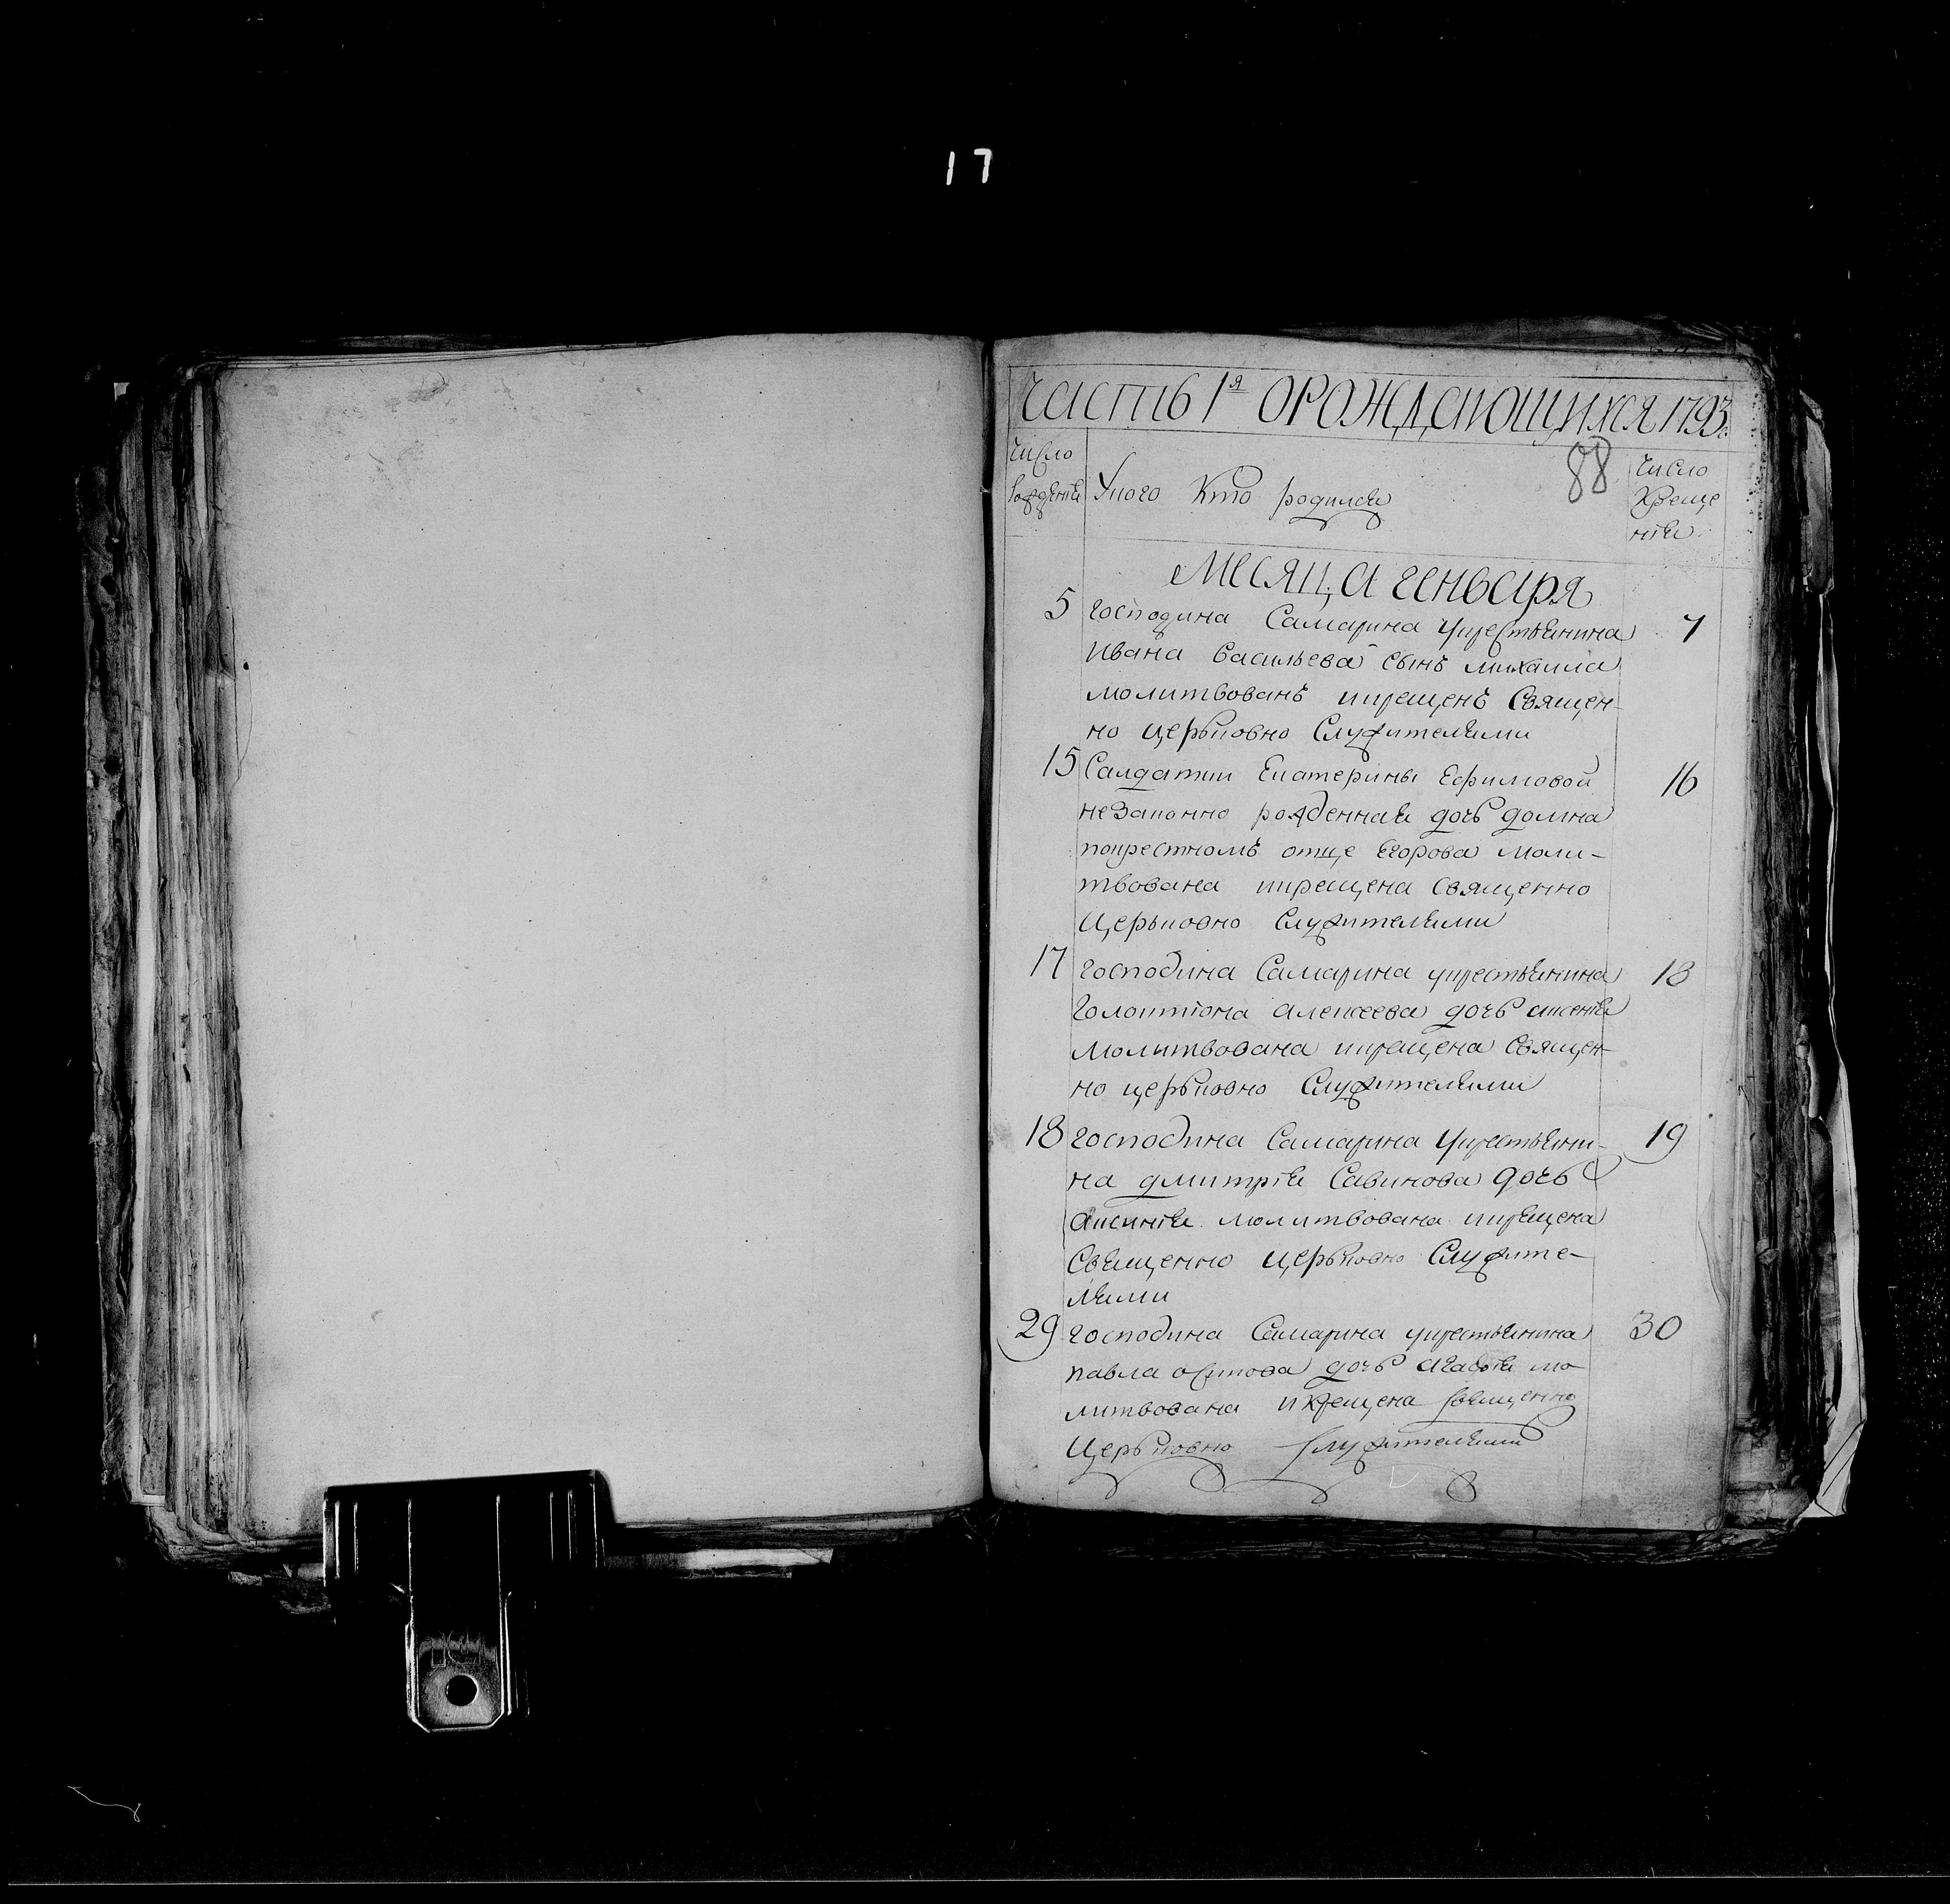 17
часть 1я о рождающихся 1793
число рожденiя
У кого кто родился
88
число креще нiя
Месяца генваря
5 господина Самарина у крестьянина 7
Ивана Васильева сынъ михаила
молитвованъ и крещенъ Священ-
но церьковно Служителями
15 Салдатки Екатерины Ефимовой 16
незаконно рожденная дочь домна
по крестномъ отце Егорова моли-
твована и крещена Священно
Церьковно Служителями
17 господина Самарина у крестьянина 18
Голактiона алексеева дочь аксенiя
молитвована и крещена Священ-
но церьковно Служителями
18 господина Самарина у крестьяни- 19
на дмитрiя Савинова дочь
аксинiя молитвована и крещена
Священно церьковно Служите-
лями
29 господина Самарина у крестьянина 30
павла осипова дочь агафiя мо
литвована и крещена Священно
Церьковно Служителями